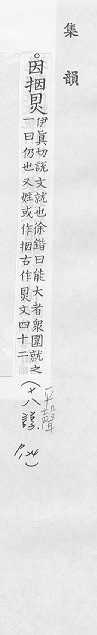 集韻
。因捆㒙伊眞切說文就也徐錯曰能大者衆圍就之
一曰仍也又姓或作捆古作㒙文四十二
(十八諄
平聲